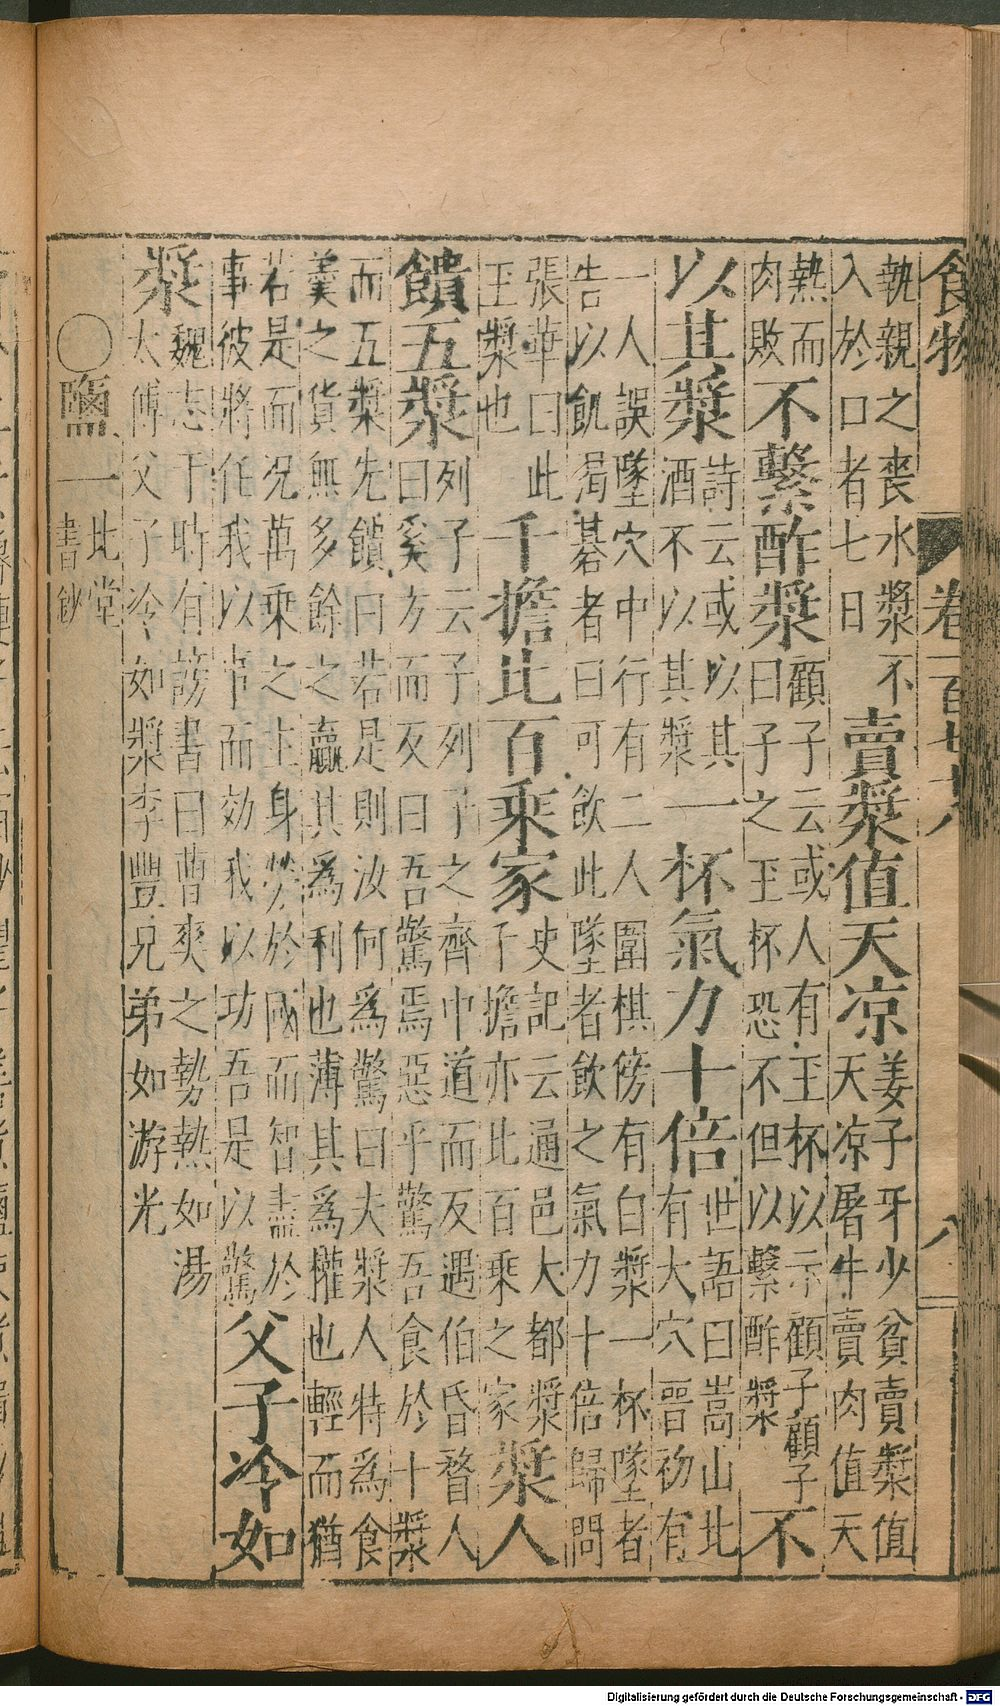 食物 卷一百七十八 八
執親之喪水漿不
入於口者七日
賣漿值天凉
姜子牙少貧賣漿值
天凉屠牛賣肉值天
熱而
肉敗
不繫酢漿
顧子云或人有玉杯以示顧子顧子
曰子之玉杯恐不但以繫酢漿
不
以其漿
詩云或以其
酒不以其漿
一杯氣力十倍
世語曰嵩山北
有大穴晉初有
一人誤墜穴中行有二人圍棋傍有白漿一杯墜者
告以飢渴碁者曰可飲此墜者飲之氣力十倍歸問
張華曰此
玉漿也
千擔比百乘家
史記云通邑大都漿
千擔亦比百乘之家
漿人
饋五漿
列子云子列子之齊中道而反遇伯昏瞀人
曰奚方而反曰吾驚焉惡乎驚吾食於十漿
而五漿先饋曰若是則汝何爲驚曰夫漿人特爲食
羹之貨無多餘之贏其爲利也薄其爲權也輕而猶
若是而况萬乘之主身勞於國而智盡於
事彼將任我以事而効我以功吾是以驚
父子冷如
漿
魏志于時有謗書曰曹爽之勢熱如湯
太傅父子冷如漿李豐兄弟如游光
〇鹽一
北堂
書鈔
Digitalisierung gefördert durch die Deutsche Forschungsgemeinschaft - DFG